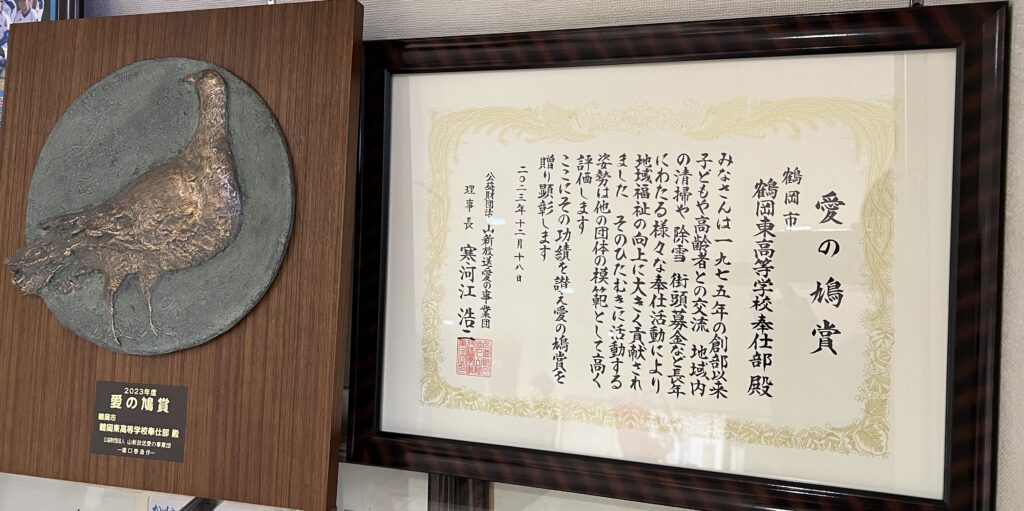 愛の鳩賞
鶴岡市
鶴岡東高等学校奉仕部 殿
みなさんは一九七五年の創部以来
子どもや高齢者との交流 地域内
の清掃や 除雪 街頭募金など長年
にわたる様々な奉仕活動により
地域福祉の向上に大きく貢献され
ました そのひたむきに活動する
姿勢は他の団体の模範として高く
評価します
ここにその功績を讃え愛の鳩賞を
贈り顕彰します
二〇二三年十二月十八日
公益財団法人山新放送愛の事業団
理事長 寒河江 浩二
2023年度
愛の鳩賞
鶴岡市
鶴岡東高等学校奉仕部 殿
公益財団法人 山新放送愛の事業団